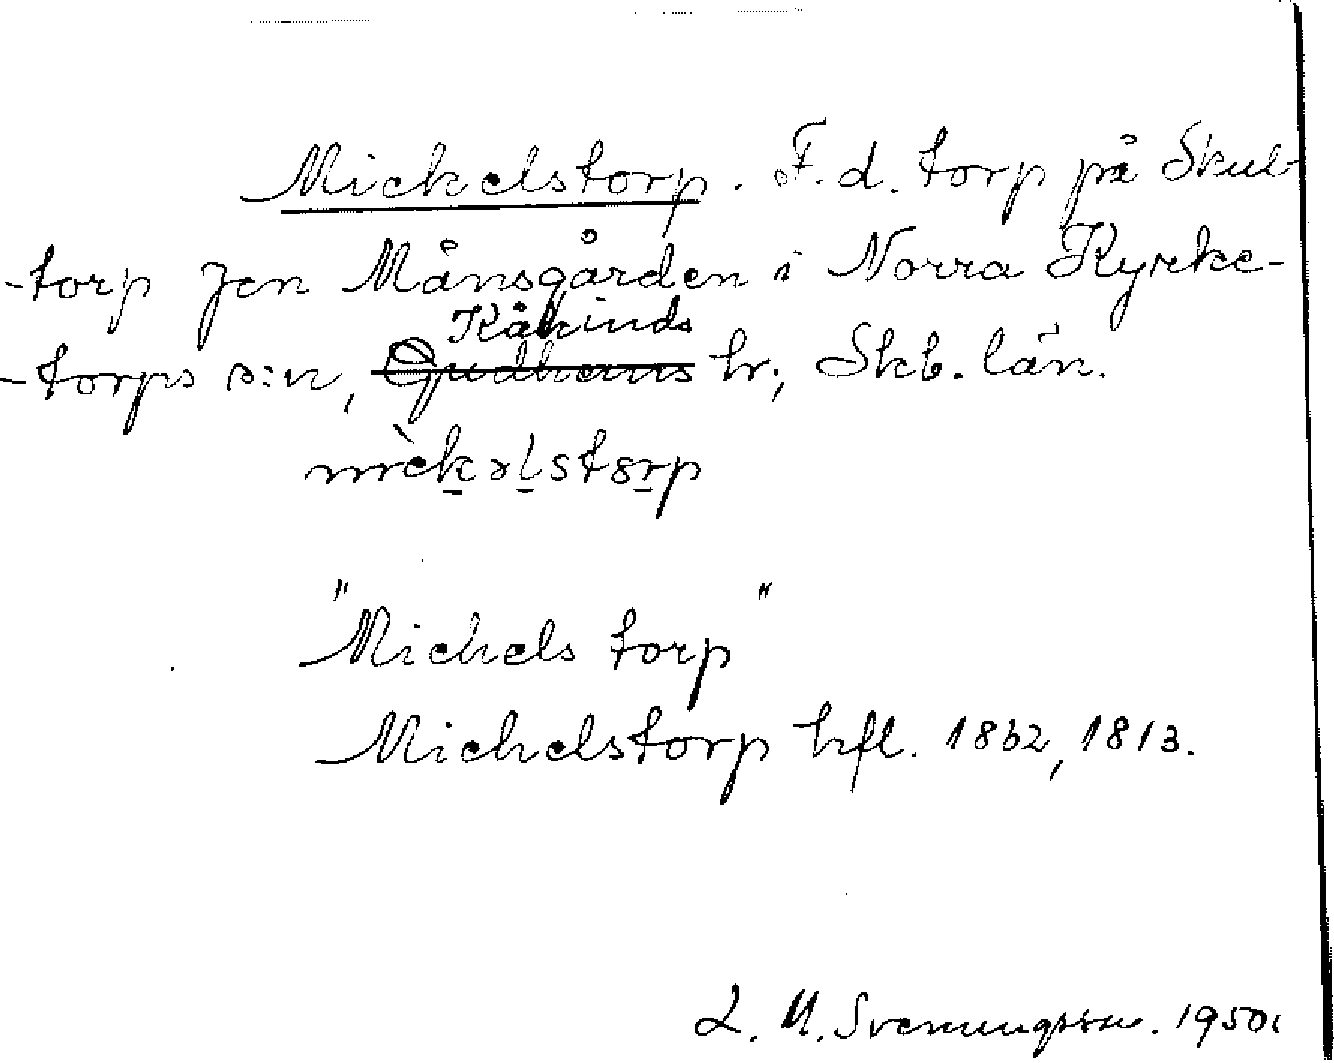 Mickelstorp. F.d. torp på Skul-
-torp Jon Månsgården i Norra Kyrke-
Kåkinds
-torps s:n, Gudhems hr; Skb. län.
mèkəlstorp
"Michels torp"
Michelstorp hfl. 1862, 1813.
L. M. Svenungsson. 1950.